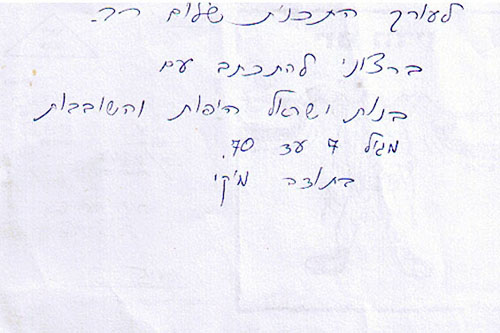 לעורך התכנית שלום רב.
ברצוני להתכתב עם
בנות ישראל היפות והשובבות
מגיל 7 עד 70.
בתודה מיקי